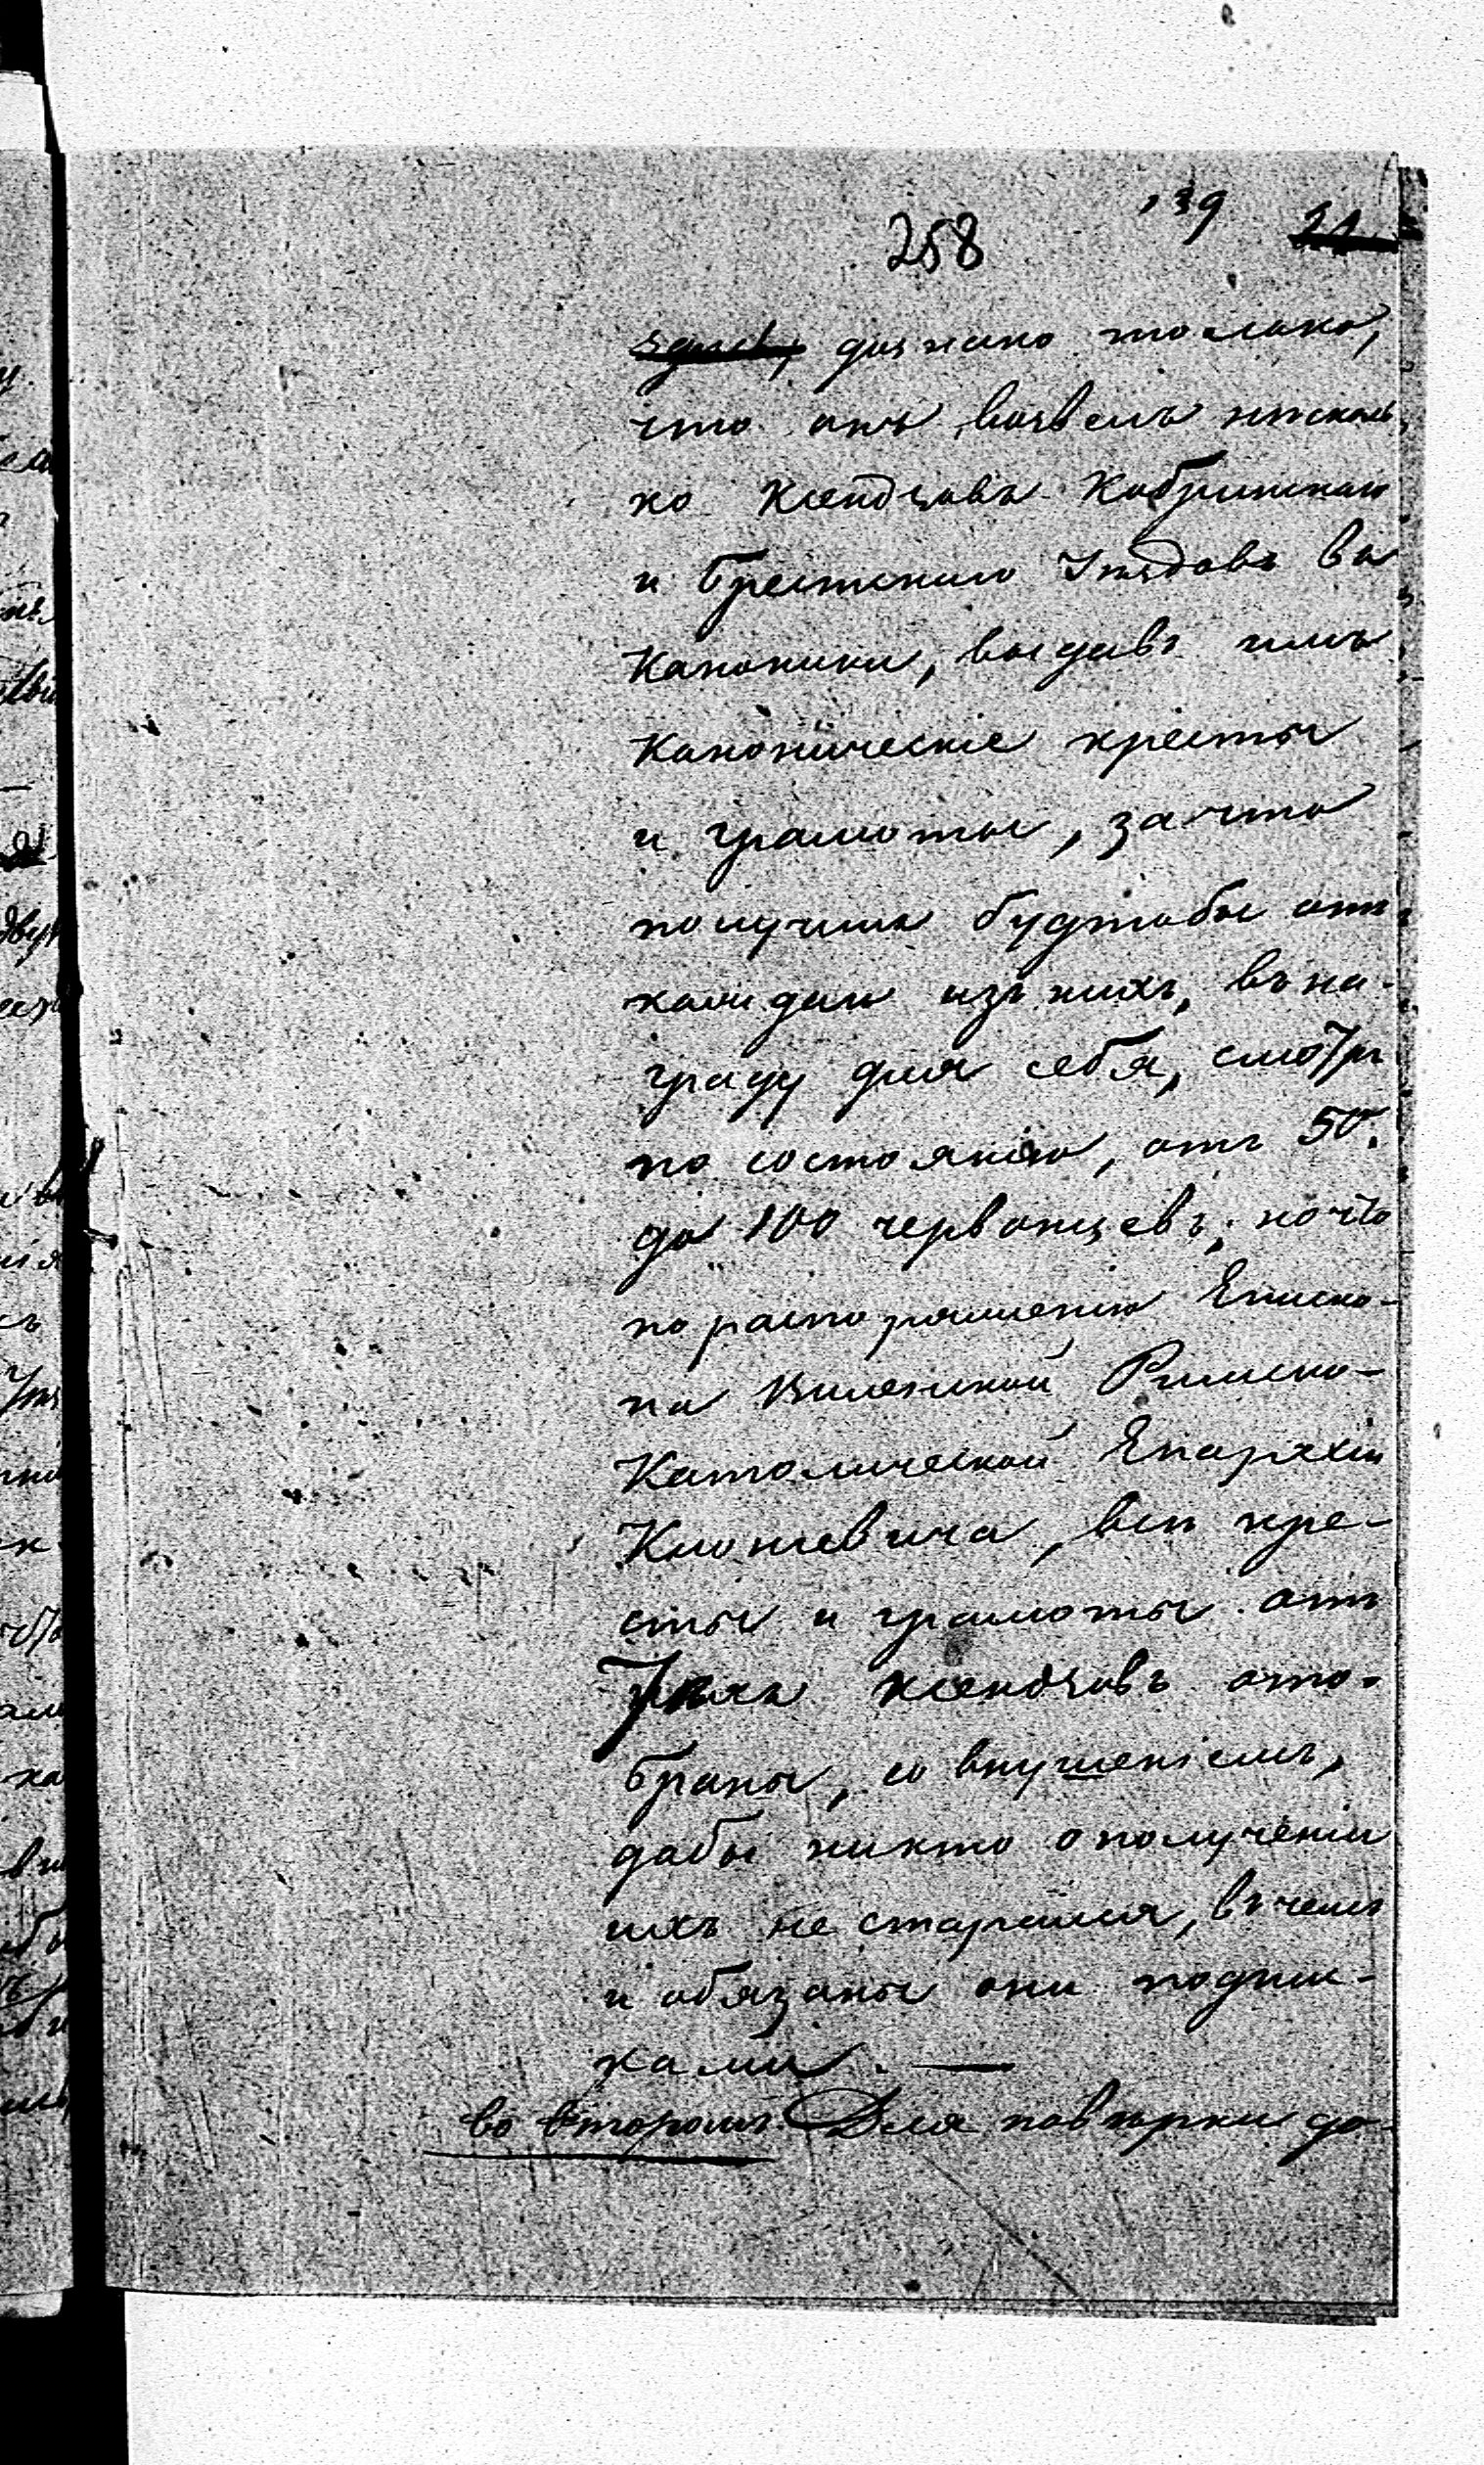 258 139 21
дознано только,
что онъ возвелъ несколь
ко Ксендзовъ Кобринскаго
и Брестскаго Уѣздовъ въ
Каноники, выдавъ имъ
Каноническіе кресты
и грамоты, за что
получилъ будтобы отъ
каждаго изъ нихъ, въ на-
граду для себя, смотря
по состоянію, отъ 50.
до 100 червонцевъ; но что
по распоряженію Еписко-
па Виленской Римско-
Католической Епархіи
Клонгевича, всѣ кре-
сты и грамоты отъ
тѣхъ ксендзовъ ото-
браны, со внушеніемъ,
дабы никто о полученіи
ихъ не старался, въ чемъ
и обязаны они подпис-
ками. —
во второмъ Для повѣрки до-